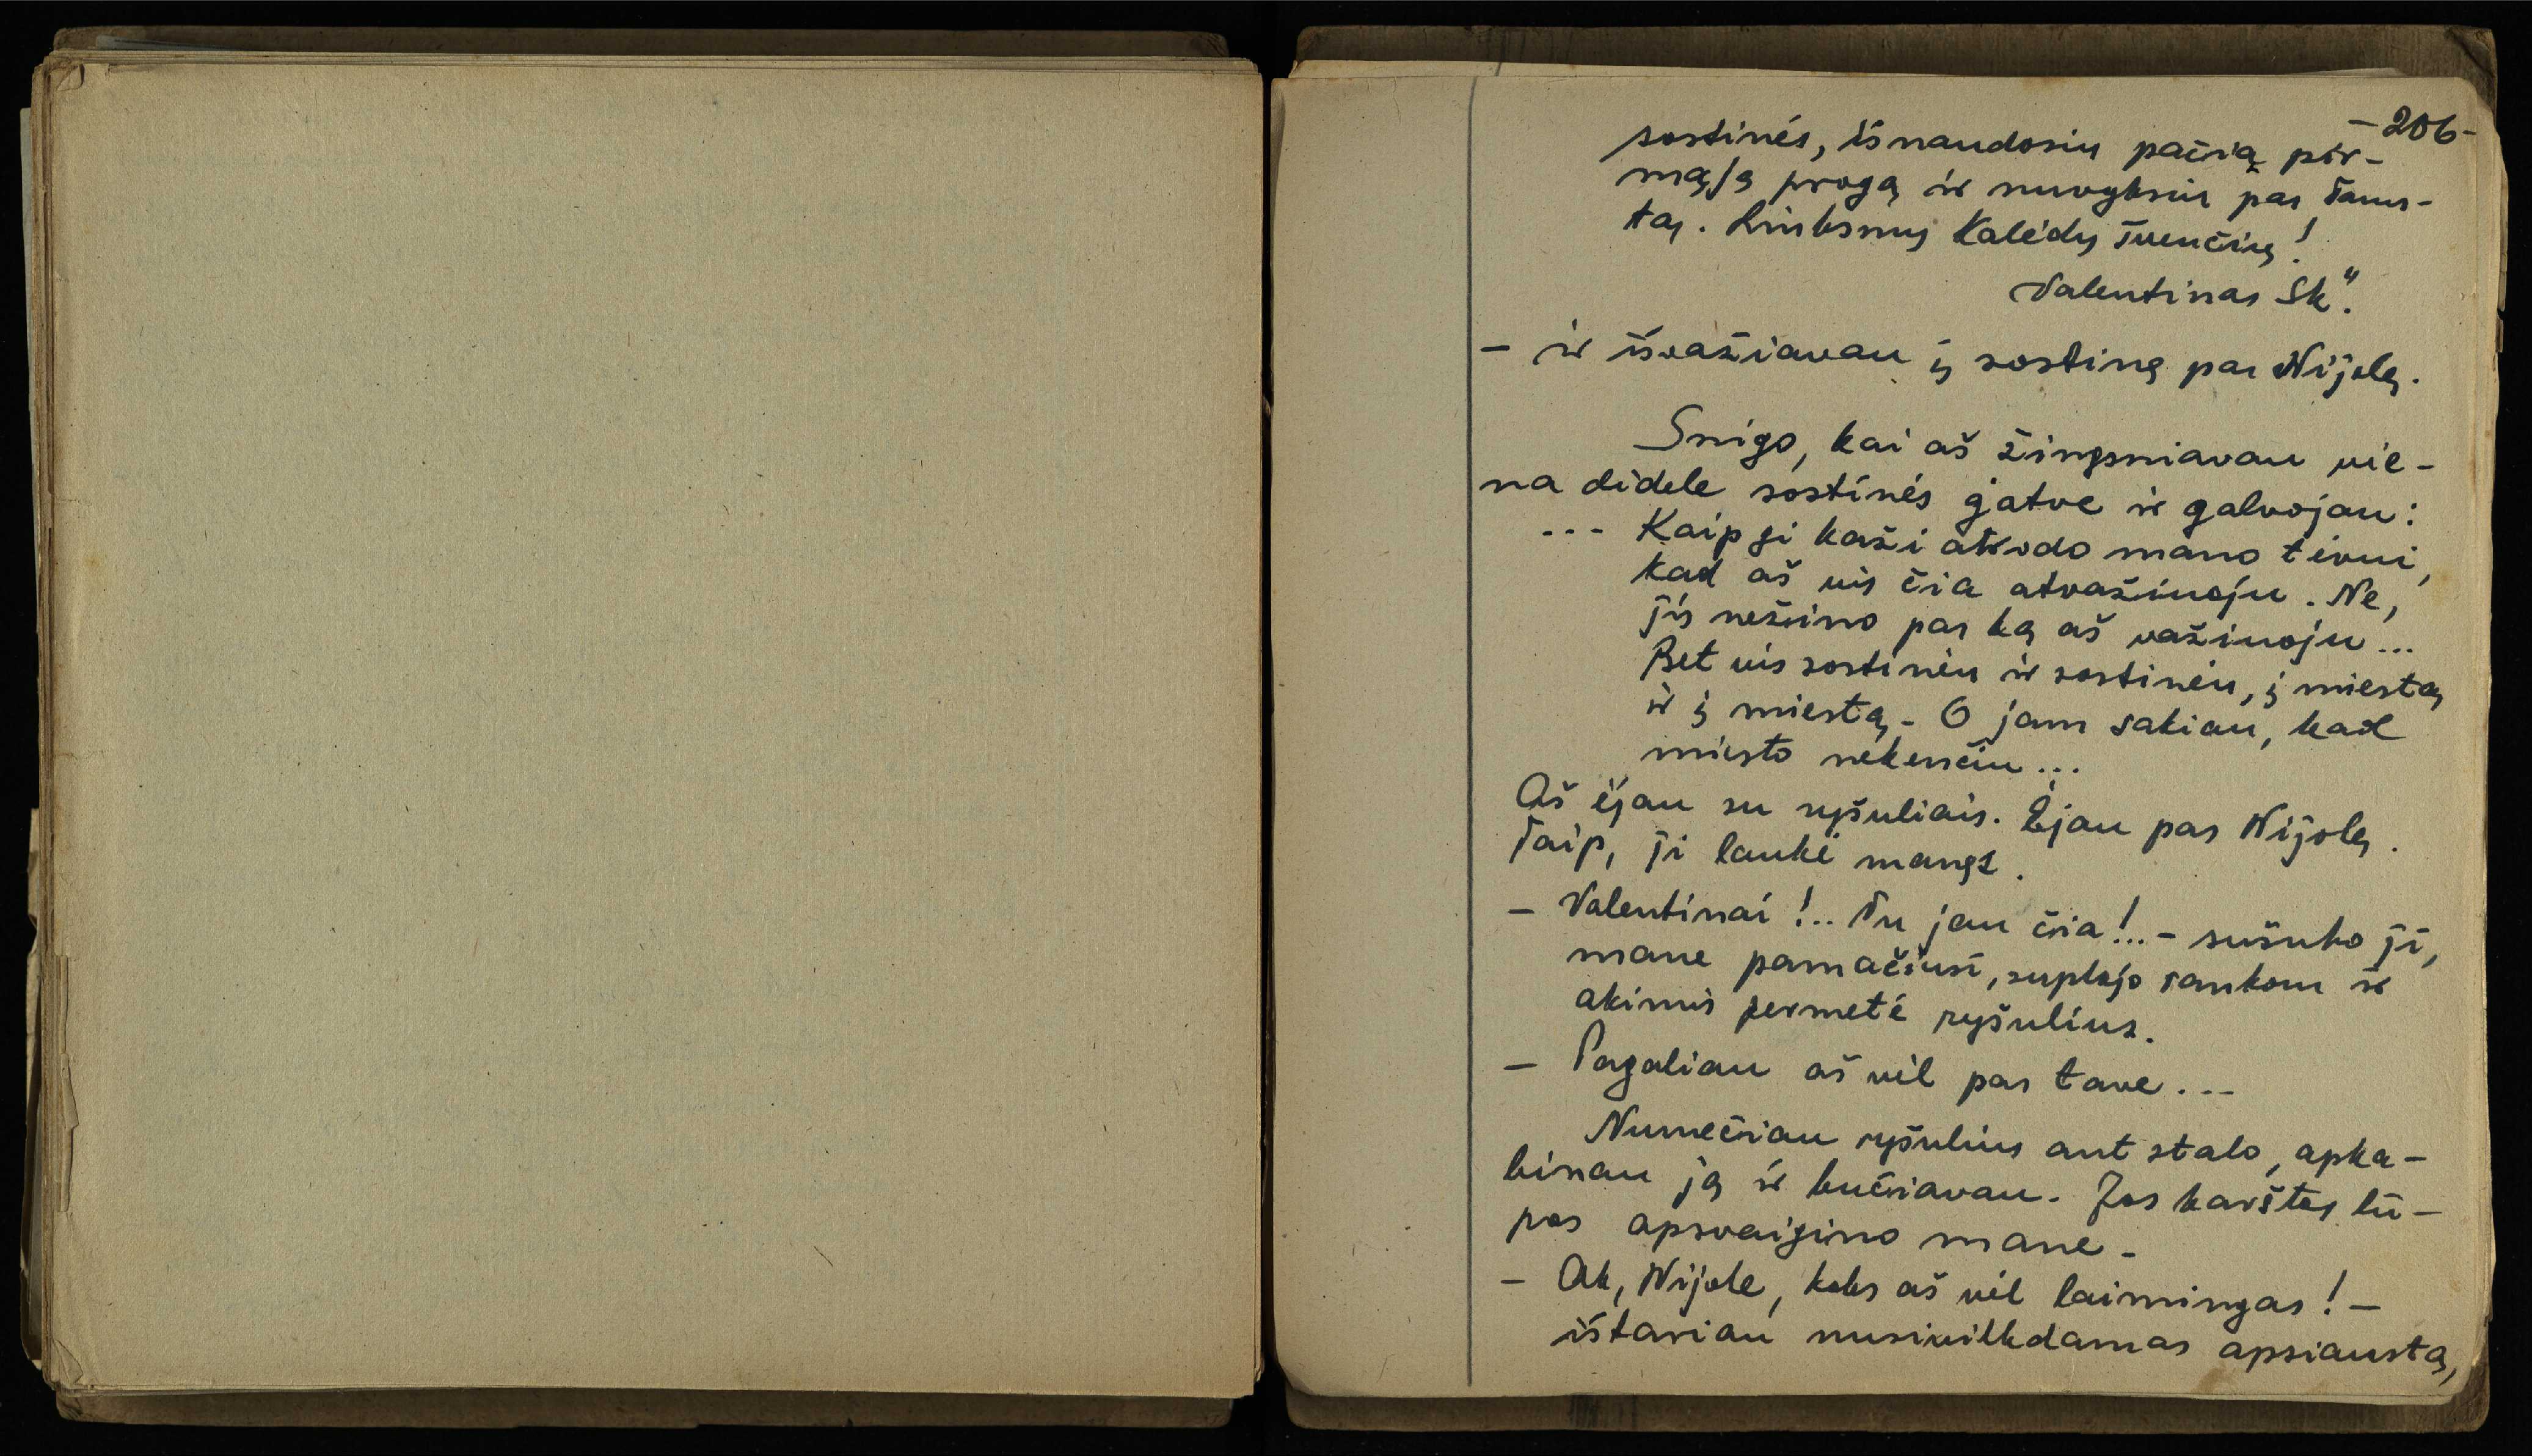 -206-
sostinės, išnaudosiu pačią pir-
mąją progą ir nuvyksiu pas Tams-
tą. Linksmų Kalėdų švenčių!
Valentinas Sk".
- ir išvažiavau į sostinę pas Nijolę.
Snigo, kai aš žingsniavau vie-
na didele sostinės gatve ir galvojau:
... Kaip gi kaži atrodo mano tėvui,
kad aš vis čia atvažinėju. Ne,
jis nežino pas ką aš važinėju...
Bet vis sostinėn ir sostinėn, į miestą
ir į miestą. O jam sakiau, kad
miesto nekenčiu...
Aš ėjau su ryšuliais. Ėjau pas Nijolę.
Taip, ji laukė manęs.
- Valentinai!.. Tu jau čia!.. - sušuko ji,
mane pamačiusi, suplojo rankom ir
akimis permetė ryšulius.
- Pagaliau aš vėl pas tave...
Numečiau ryšulius ant stalo, apka-
binau ją ir bučiavau. Jos karštos lū-
pos apsvaigino mane.
- Ak, Nijole, koks aš vėl laimingas! -
ištariau nusivilkdamas apsiaustą,